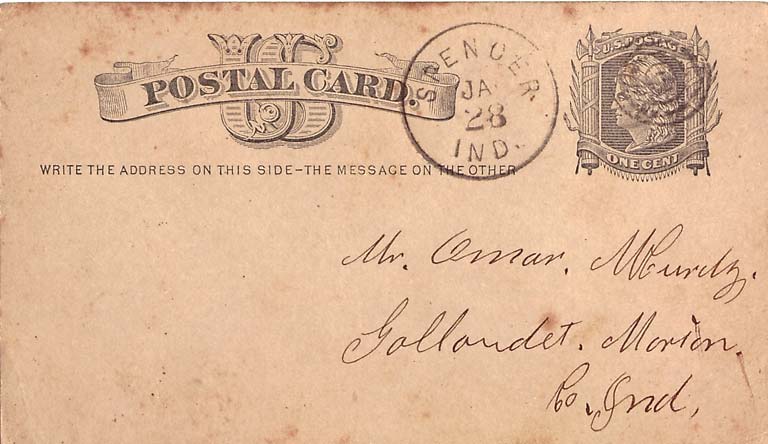 US
POSTAL CARD.
SPENCER. IND.
JA
28
U.S. POSTAGE
ONE CENT
WRITE THE ADDRESS ON THIS SIDE-THE MESSAGE ON THE OTHER
Mr. Omar.
Gollaudet. Marion
Co. Ind,